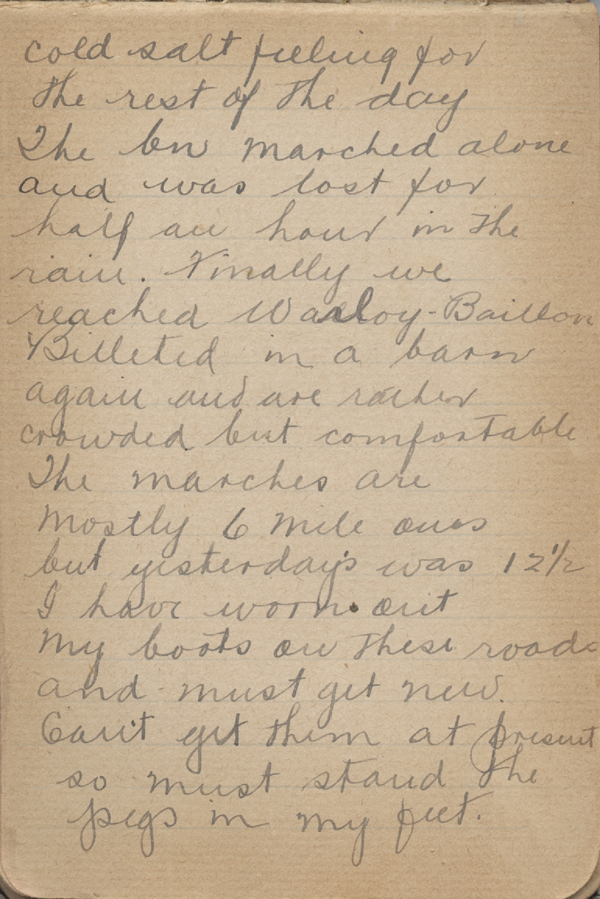 cold salt feeling for
the rest of the day
The bn marched alone
and was lost for
half an hour in the
rain. Finally we
reached Warloy-Baillon
Billeted in a barn
again and are rather
crowded but comfortable
The marches are
mostly 6 mile ones
but yesterday's was 12½
I have worn out
my boots on these roads
and must get new.
Can't get them at present
so must stand the
pegs in my feet.